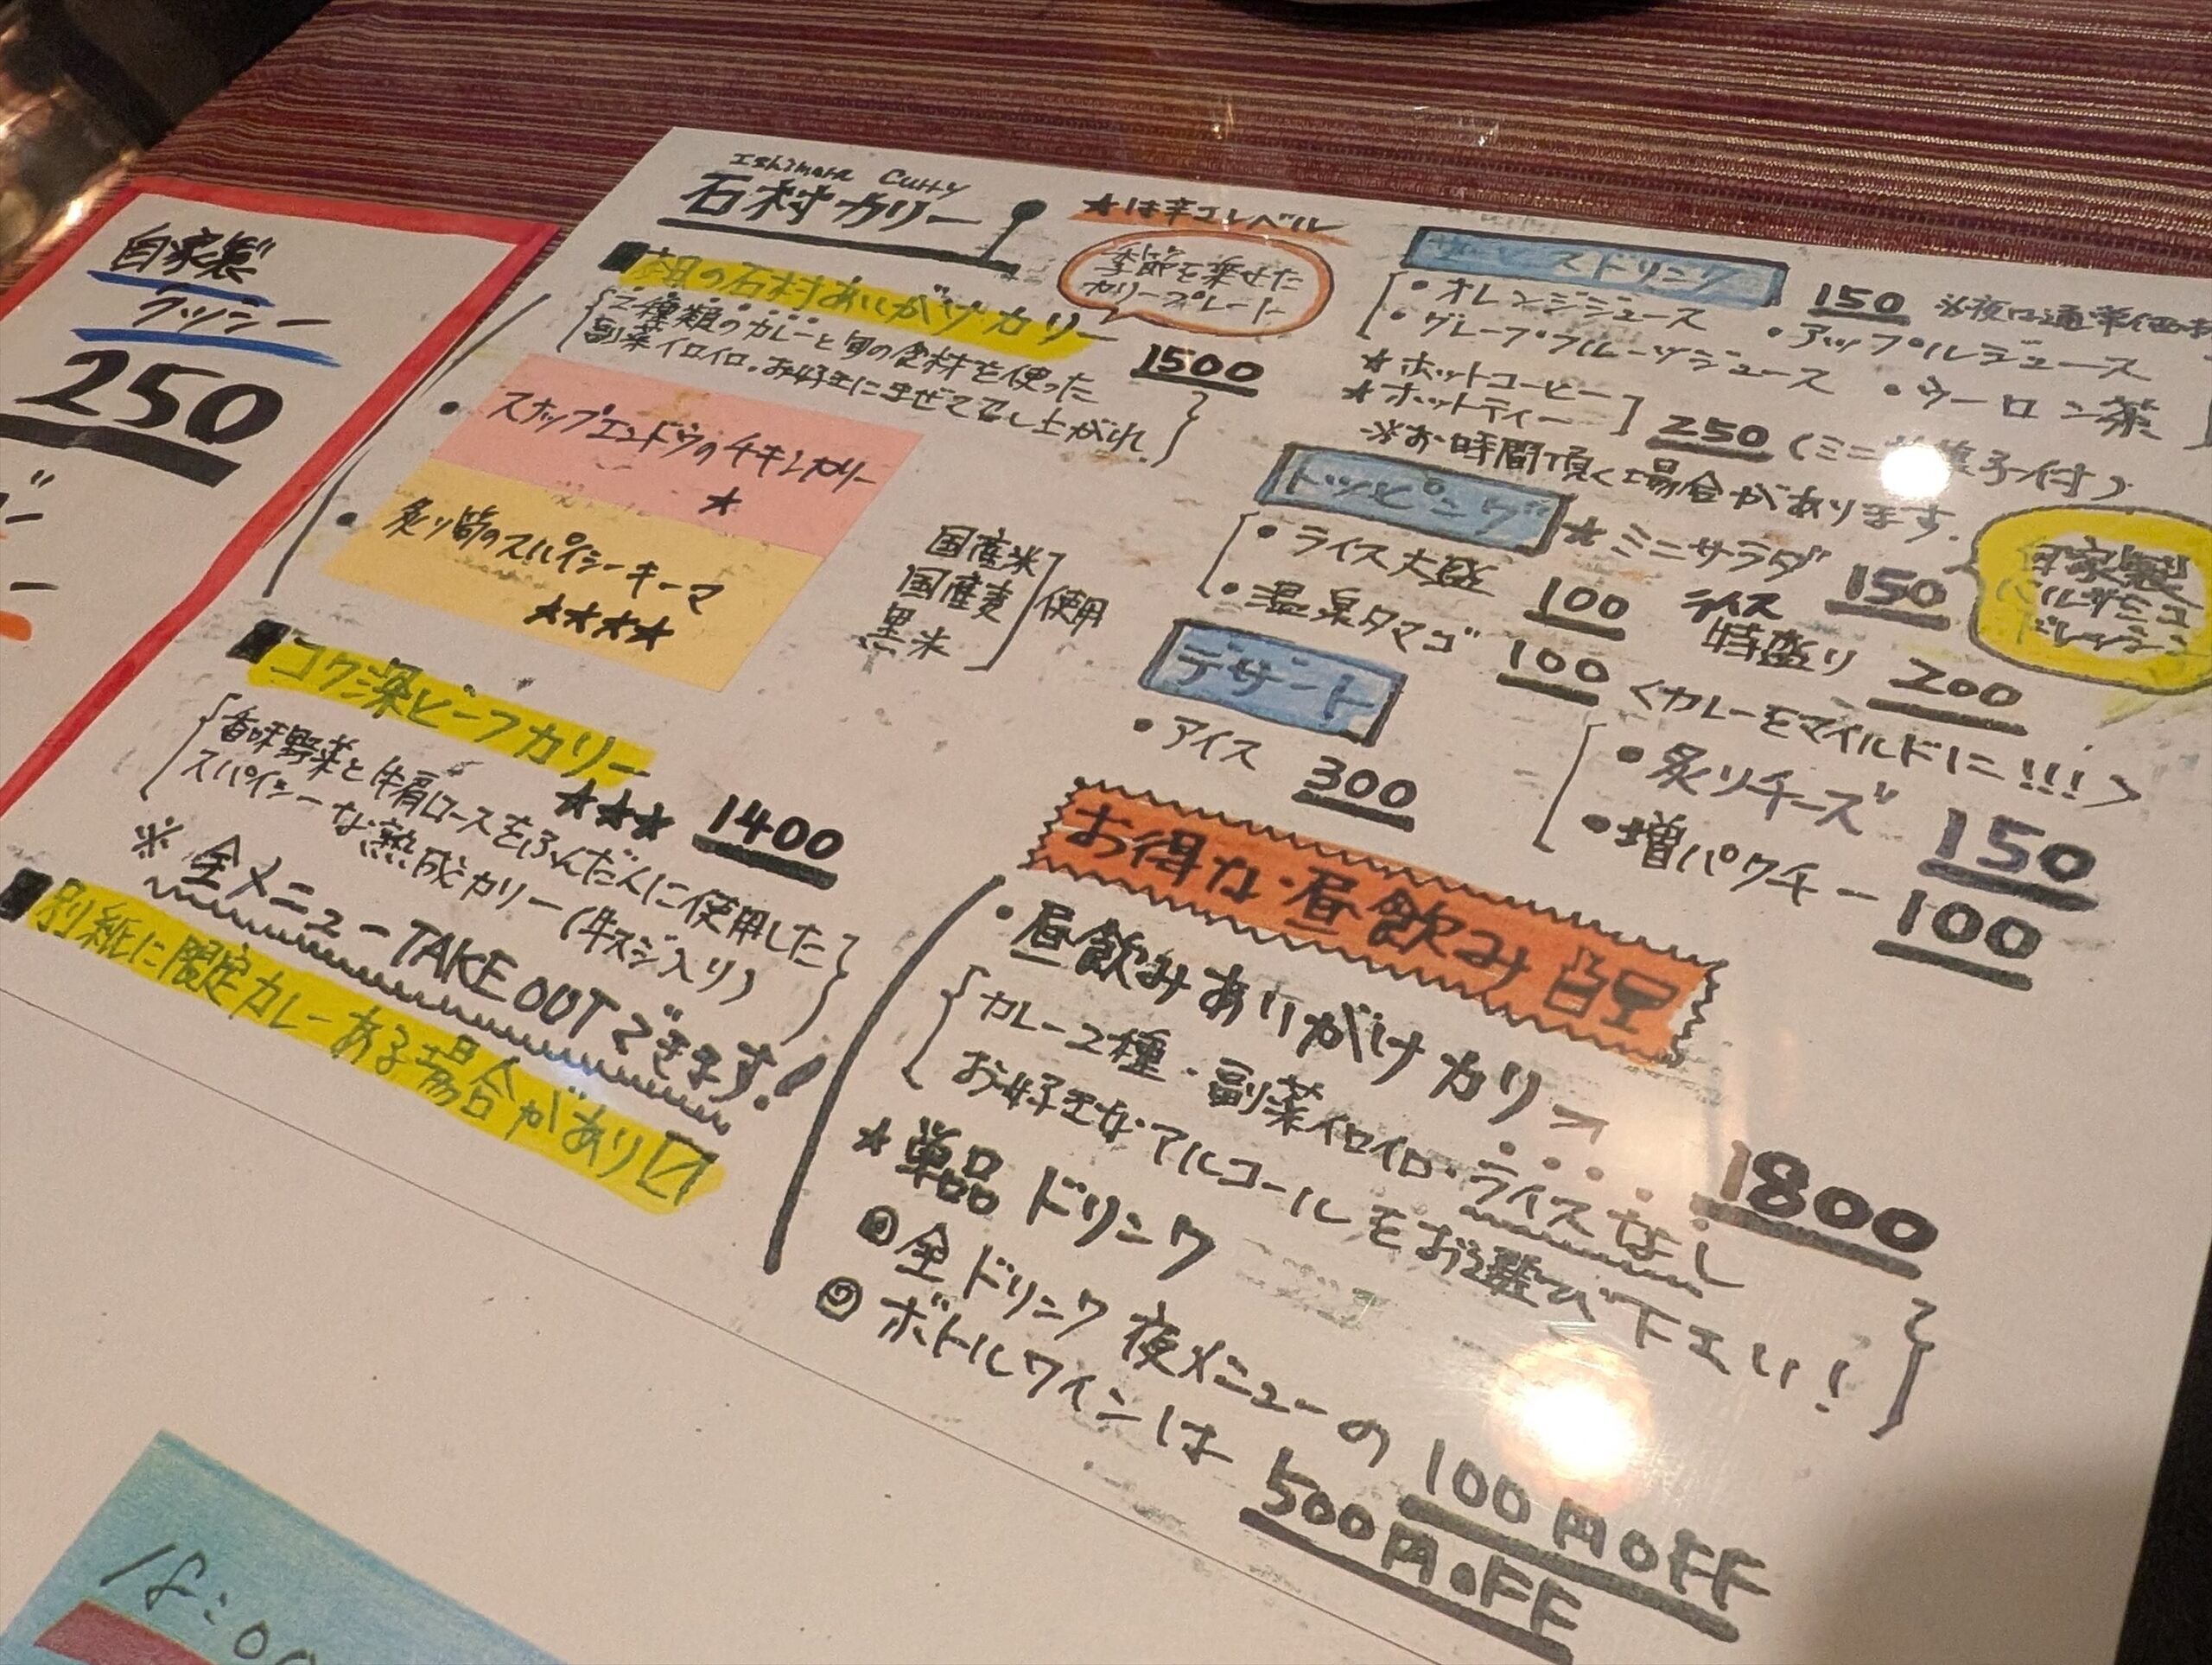 自家製
ラッシー
250
Ishimura Curry
石村カリー
★は辛さレベル
季節を乗せた
カリープレート
■本日の石村あいがけカリー
2種類のカレーと旬の食材を使った
副菜イロイロ。お好きにまぜて召し上がれ。
1500
・スナップエンドウのチキンカリー
★
・炙り筍のスパイシーキーマ
★★★★
国産米
国産麦
黒米
使用
■コク深ビーフカリー
★★★ 1400
香味野菜と牛肩ロースをふんだんに使用した
スパイシーな熟成カリー(牛スジ入り)
※全メニューTAKE OUTできます!
■別紙に限定カレーある場合があり〼
サービスドリンク
150 ※夜は通常価格
・オレンジジュース ・アップルジュース
・グレープフルーツジュース ・ウーロン茶
★ホットコーヒー
★ホットティー
250 (ミニ菓子付)
※お時間頂く場合があります.
トッピング
★ミニサラダ 150
自家製
バルサミコ
ドレッシング
・ライス大盛 100
ライス特盛り 200
・温泉タマゴ 100
<カレーをマイルドに!!!>
・炙りチーズ 150
・増パクチー 100
デザート
・アイス 300
お得な昼飲み
・昼飲みあいがけカリー 1800
カレー2種・副菜イロイロ・ライスなし
お好きなアルコールをお選び下エい!
★単品ドリンク
全ドリンク夜メニューの100円OFF
ボトルワインは500円OFF